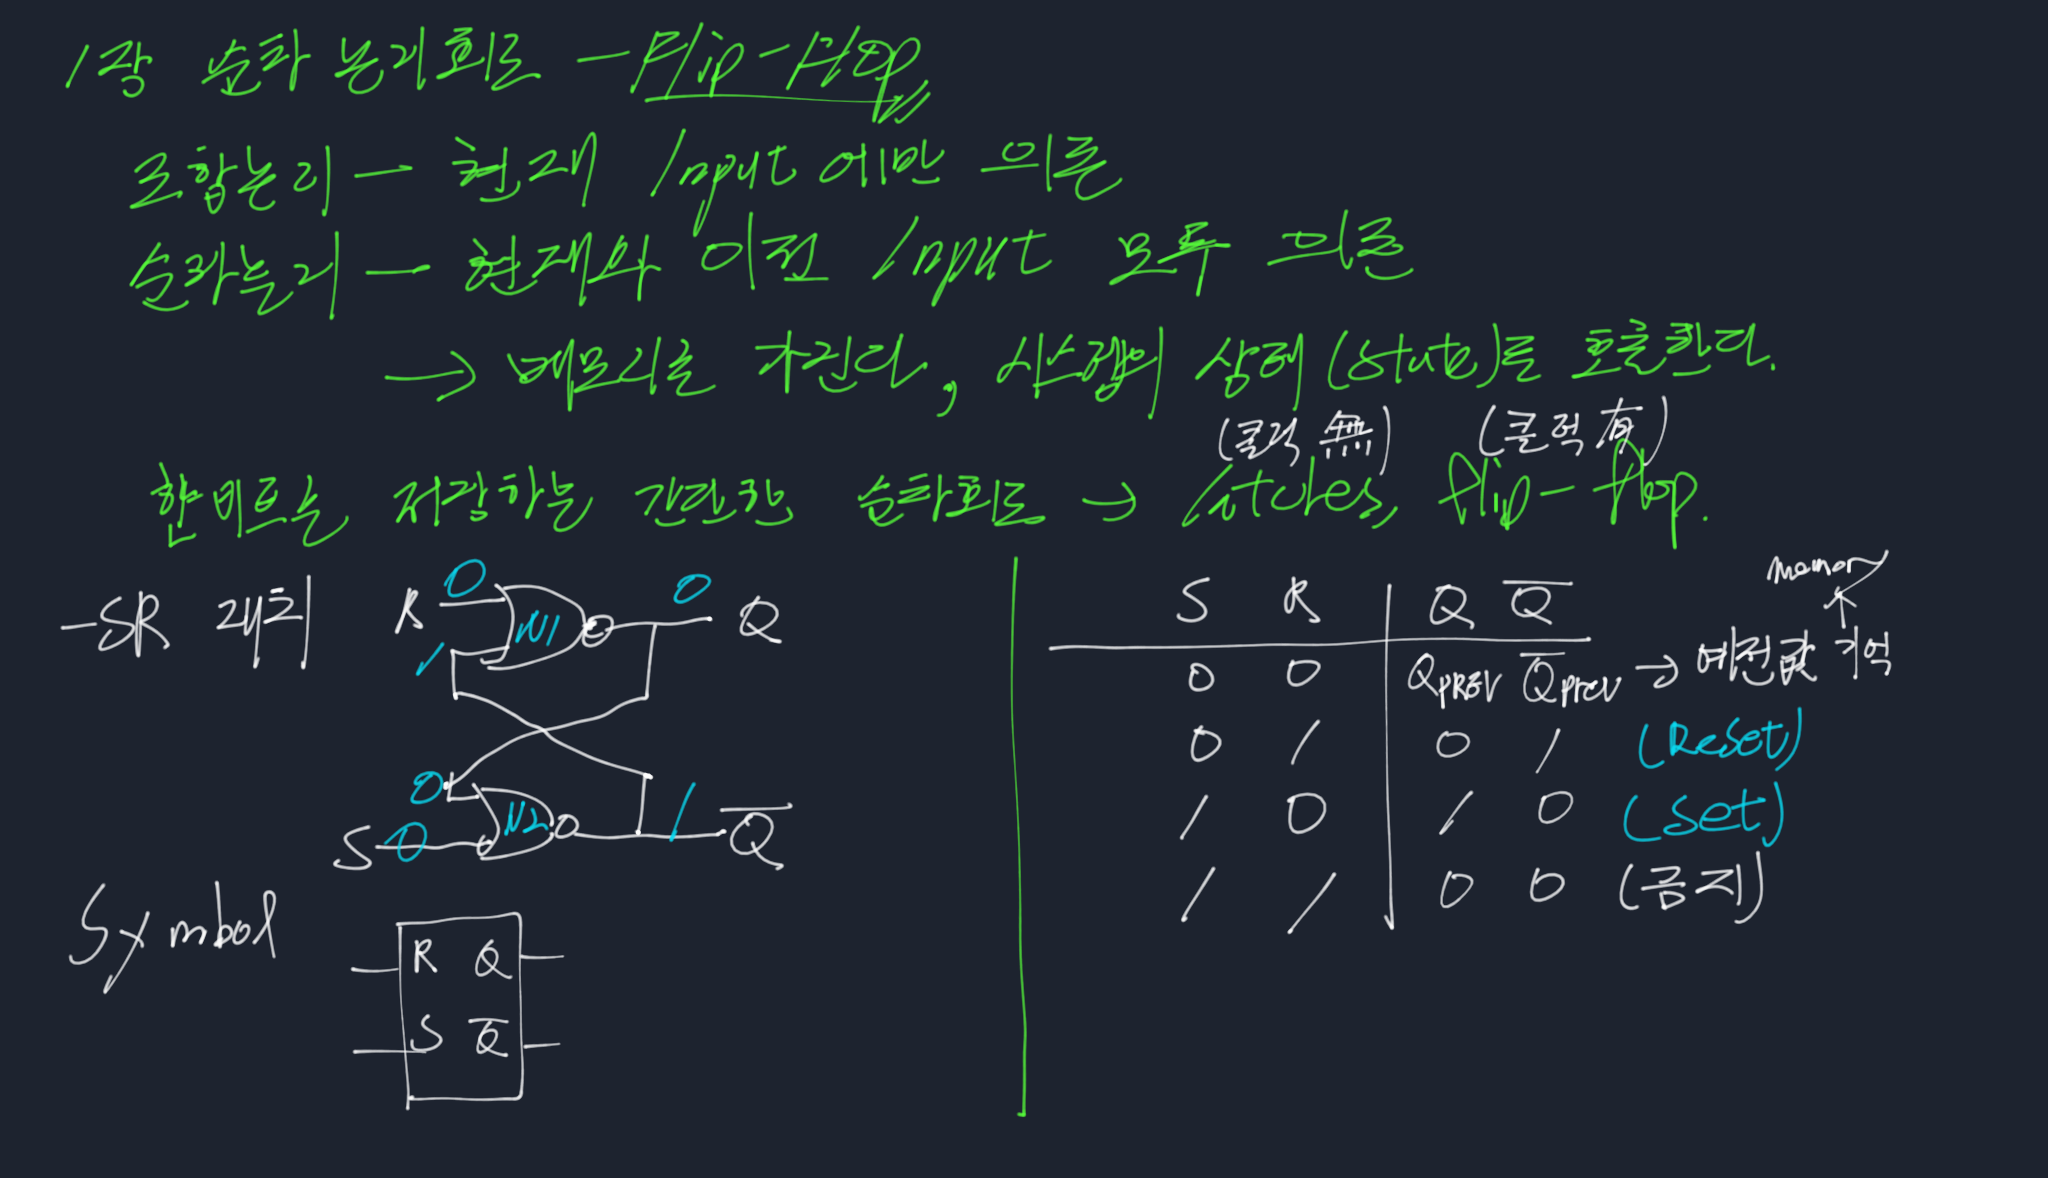 1장 순차 논리회로 - Flip-Flop
조합논리 - 현재 Input에만 의존
순차논리 - 현재와 이전 Input 모두 의존
→ 메모리를 가진다, 시스템이 상태(state)를 포함한다.
(클럭 無) (클럭 有)
한비트를 저장하는 간단한 순차회로 → latches, flip-flop.
-SR 래치
R 0 N1 0 Q
1
0
S 0 N2 1 Q̅
Symbol
R Q
S Q̅
memory
↑
S R Q Q̅
0 0 QPREV Q̅prev → 예전값 기억
0 1 0 1 (Reset)
1 0 1 0 (Set)
1 1 0 0 (금지)